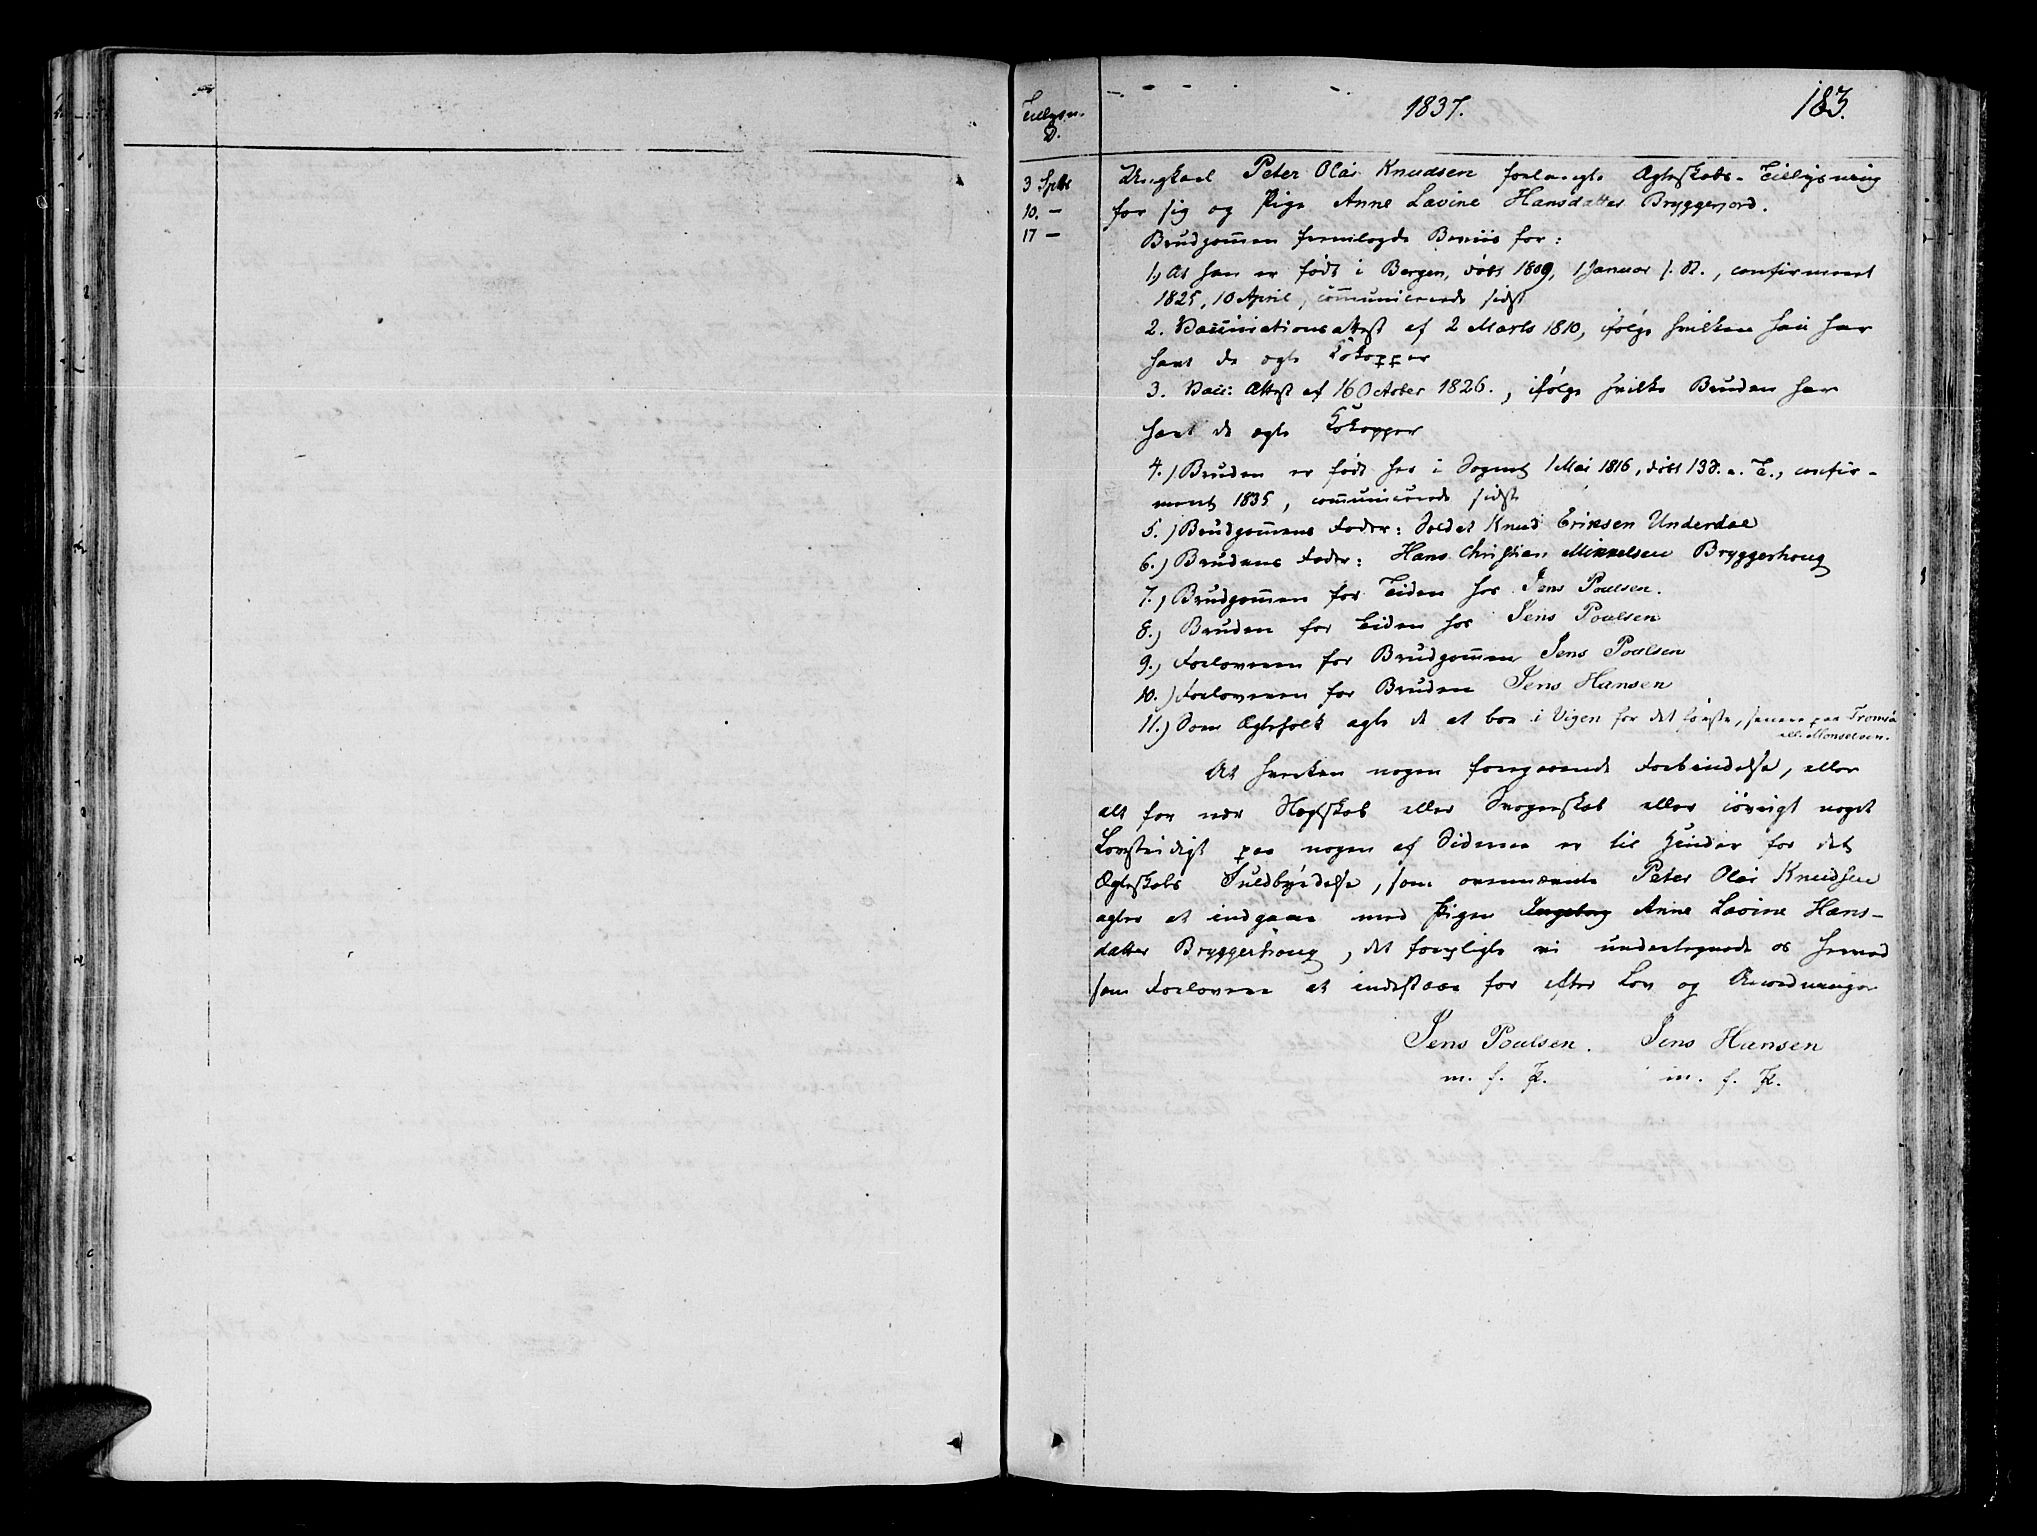 1837. 183.
Tillysn.
D.
3 Sptbr
10. —
17 —
Ungkael Peter Olai Knudsen forlangte Ægteskabs-Tillysning
for sig og Pige Anne Lavine Hansdatter Bryggerjord.
Brudgom̄en fremlagde Beviis for:
1.) At han er født i Bergen, døbt 1809, 1 Januar s. A., confirmeret
1825, 10 April, com̄unicerede sidst
2. Vaccinationsattest af 2 Marts 1810, ifølge hvilken han har
havt de ægte Kokopper
3. Vacc: Attest af 16 October 1826., ifølge hvilke Bruden har
havt de ægte Kokopper
4.) Bruden er født her i Sognet 1 Mai 1816, døbt 13 d. a. T., confir-
meret 1835, com̄unicerede sidst
5.) Brudgom̄ens Fader: Soldat Knud Eriksen Underdal
6.) Brudens Fader: Hans Christian Mikkelsen Bryggerhoug
7.) Brudgom̄en for Tiden hos Jens Poulsen.
8.) Bruden for Tiden hos Jens Poulsen
9.) Forloveren for Brudgom̄en Jens Poulsen
10.) Forloveren for Bruden Jens Hansen
11.) Som Ægtefolk agte de at boe i Vigen for det første, senere paa Tromsø
ell. Monselven.
At hverken nogen foregaaende Forbindelse, eller
alt for nær Slegtskab eller Svogerskab eller iøvrigt noget
Lovstridigt paa nogen af Siderne er til Hinder for det
Ægteskabs Fuldbyrdelse, som ovennævnte Peter Olai Knudsen
agter at indgaae med Pigen Ingeborg Anne Lavine Hans-
datter Bryggerhoug, det forpligte vi undertegnede os herved
som Forlovere at indestaae for efter Lov og Anordninger
Jens Poulsen. Jens Hansen
m. f. P. m. f. P.